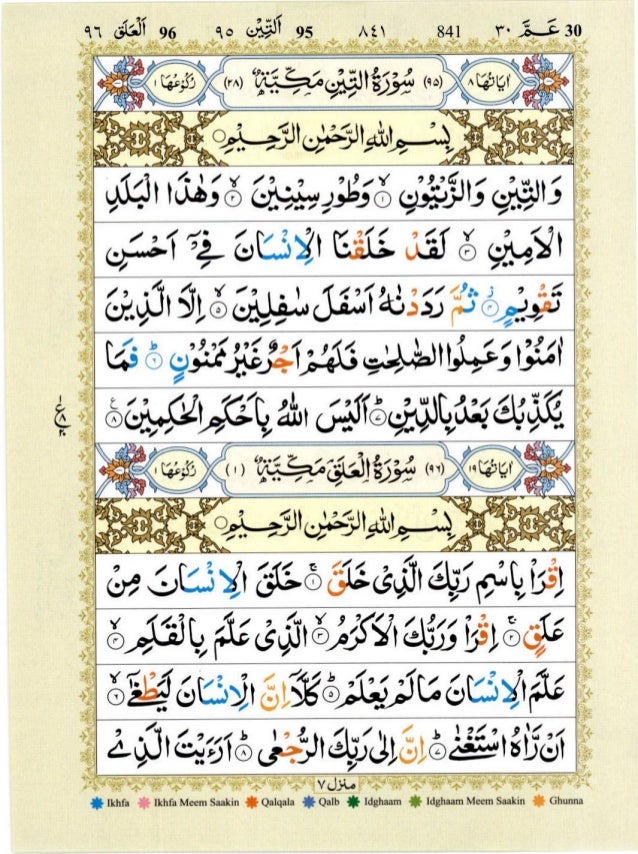 96 اَلْعَلَق ٩٦ 95 اَلتِّيْن ٩٥ ٨٤١ 841 عَمَّ ٣٠ 30
اٰيَاتُهَا ٨ (٩٥) سُوْرَةُ التِّيْنِ مَكِّيَّةٌ (٢٨) رُكُوْعُهَا ١
بِسْمِ اللهِ الرَّحْمٰنِ الرَّحِيْمِ
وَالتِّيْنِ وَالزَّيْتُوْنِ ۙ۱ وَطُوْرِ سِيْنِيْنَ ۙ۲ وَهٰذَا الْبَلَدِ
الْاَمِيْنِ ۙ۳ لَقَدْ خَلَقْنَا الْاِنْسَانَ فِىْۤ اَحْسَنِ
تَقْوِيْمٍ ۫۴ ثُمَّ رَدَدْنٰهُ اَسْفَلَ سٰفِلِيْنَ ۙ۵ اِلَّا الَّذِيْنَ
اٰمَنُوْا وَعَمِلُوا الصّٰلِحٰتِ فَلَهُمْ اَجْرٌ غَيْرُ مَمْنُوْنٍ ؕ۶ فَمَا
يُكَذِّبُكَ بَعْدُ بِالدِّيْنِ ؕ۷ اَلَيْسَ اللهُ بِاَحْكَمِ الْحٰكِمِيْنَ ۸
اٰيَاتُهَا ١٩ (٩٦) سُوْرَةُ الْعَلَقِ مَكِّيَّةٌ (١) رُكُوْعُهَا ١
بِسْمِ اللهِ الرَّحْمٰنِ الرَّحِيْمِ
اِقْرَاْ بِاسْمِ رَبِّكَ الَّذِىْ خَلَقَ ۚ۱ خَلَقَ الْاِنْسَانَ مِنْ
عَلَقٍ ۚ۲ اِقْرَاْ وَرَبُّكَ الْاَكْرَمُ ۙ۳ الَّذِىْ عَلَّمَ بِالْقَلَمِ ۙ۴
عَلَّمَ الْاِنْسَانَ مَا لَمْ يَعْلَمْ ؕ۵ كَلَّاۤ اِنَّ الْاِنْسَانَ لَيَطْغٰىۤ ۙ۶
اَنْ رَّاٰهُ اسْتَغْنٰى ؕ۷ اِنَّ اِلٰى رَبِّكَ الرُّجْعٰى ؕ۸ اَرَءَيْتَ الَّذِىْ
منزل ٧
Ikhfa Ikhfa Meem Saakin Qalqala Qalb Idghaam Idghaam Meem Saakin Ghunna